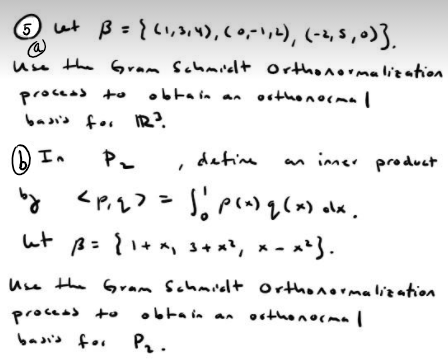 ⑤ Let β = { (1,3,4), (0,-1,2), (-2,5,0)}.
ⓐ
Use the Gram Schmidt Orthonormalization
process to obtain an orthonormal
basis for ℝ³.
ⓑ In P₂ , define an inner product
by <p,q> = ∫₀¹ p(x) q(x) dx.
Let β = { 1+x, 3+x², x-x²}.
Use the Gram Schmidt Orthonormalization
process to obtain an orthonormal
basis for P₂.